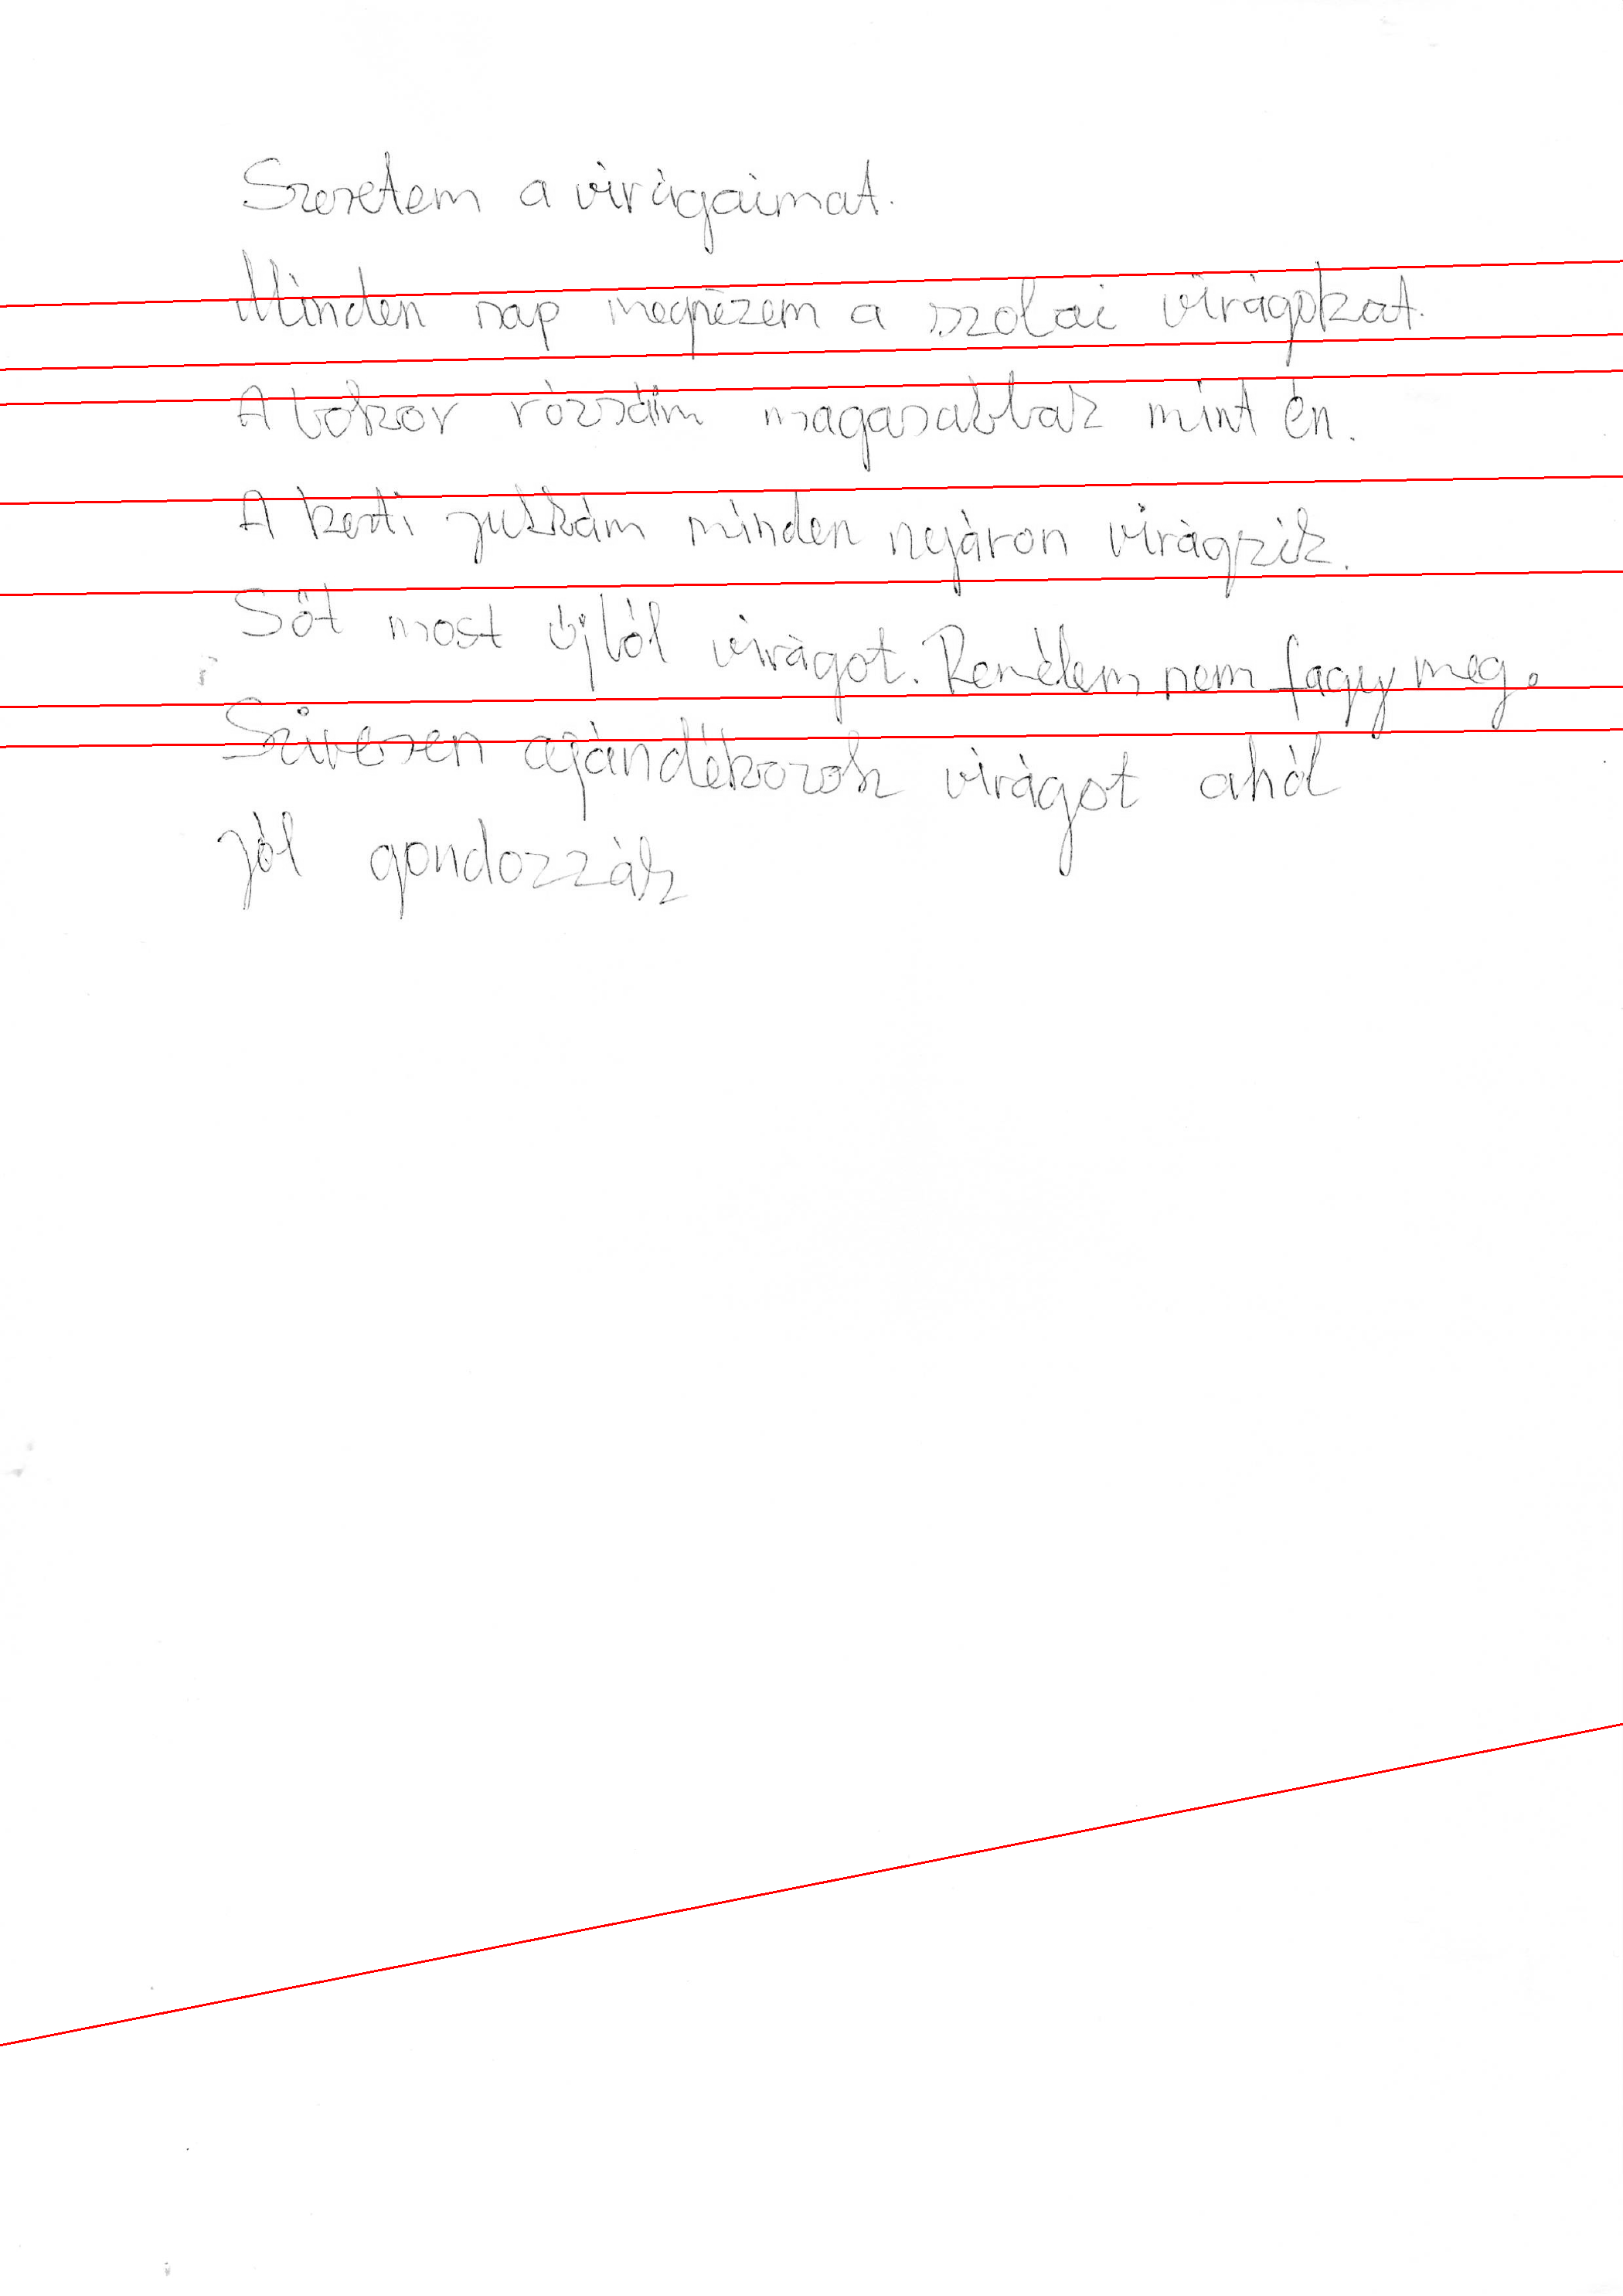 Szeretem a virágaimat.
Minden nap megnézem a szobai virágokat.
A bokor rózsáim magasabbak mint én.
A kerti jukkám minden nyáron virágzik.
Sőt most újból virágot. Remélem nem fagy meg.
Szivesen ajándékozok virágot ahol
jól gondozzák